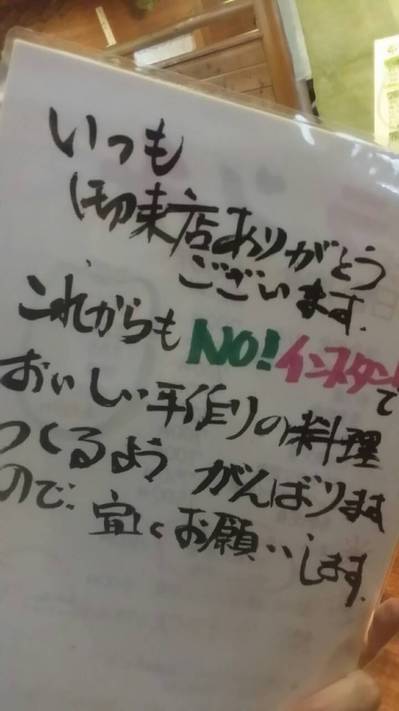 いつも
御来店ありがとう
ございます.
これからもNO!インスタントで
おいしい手作りの料理
つくるよう がんばります
ので: 宜くお願いします.